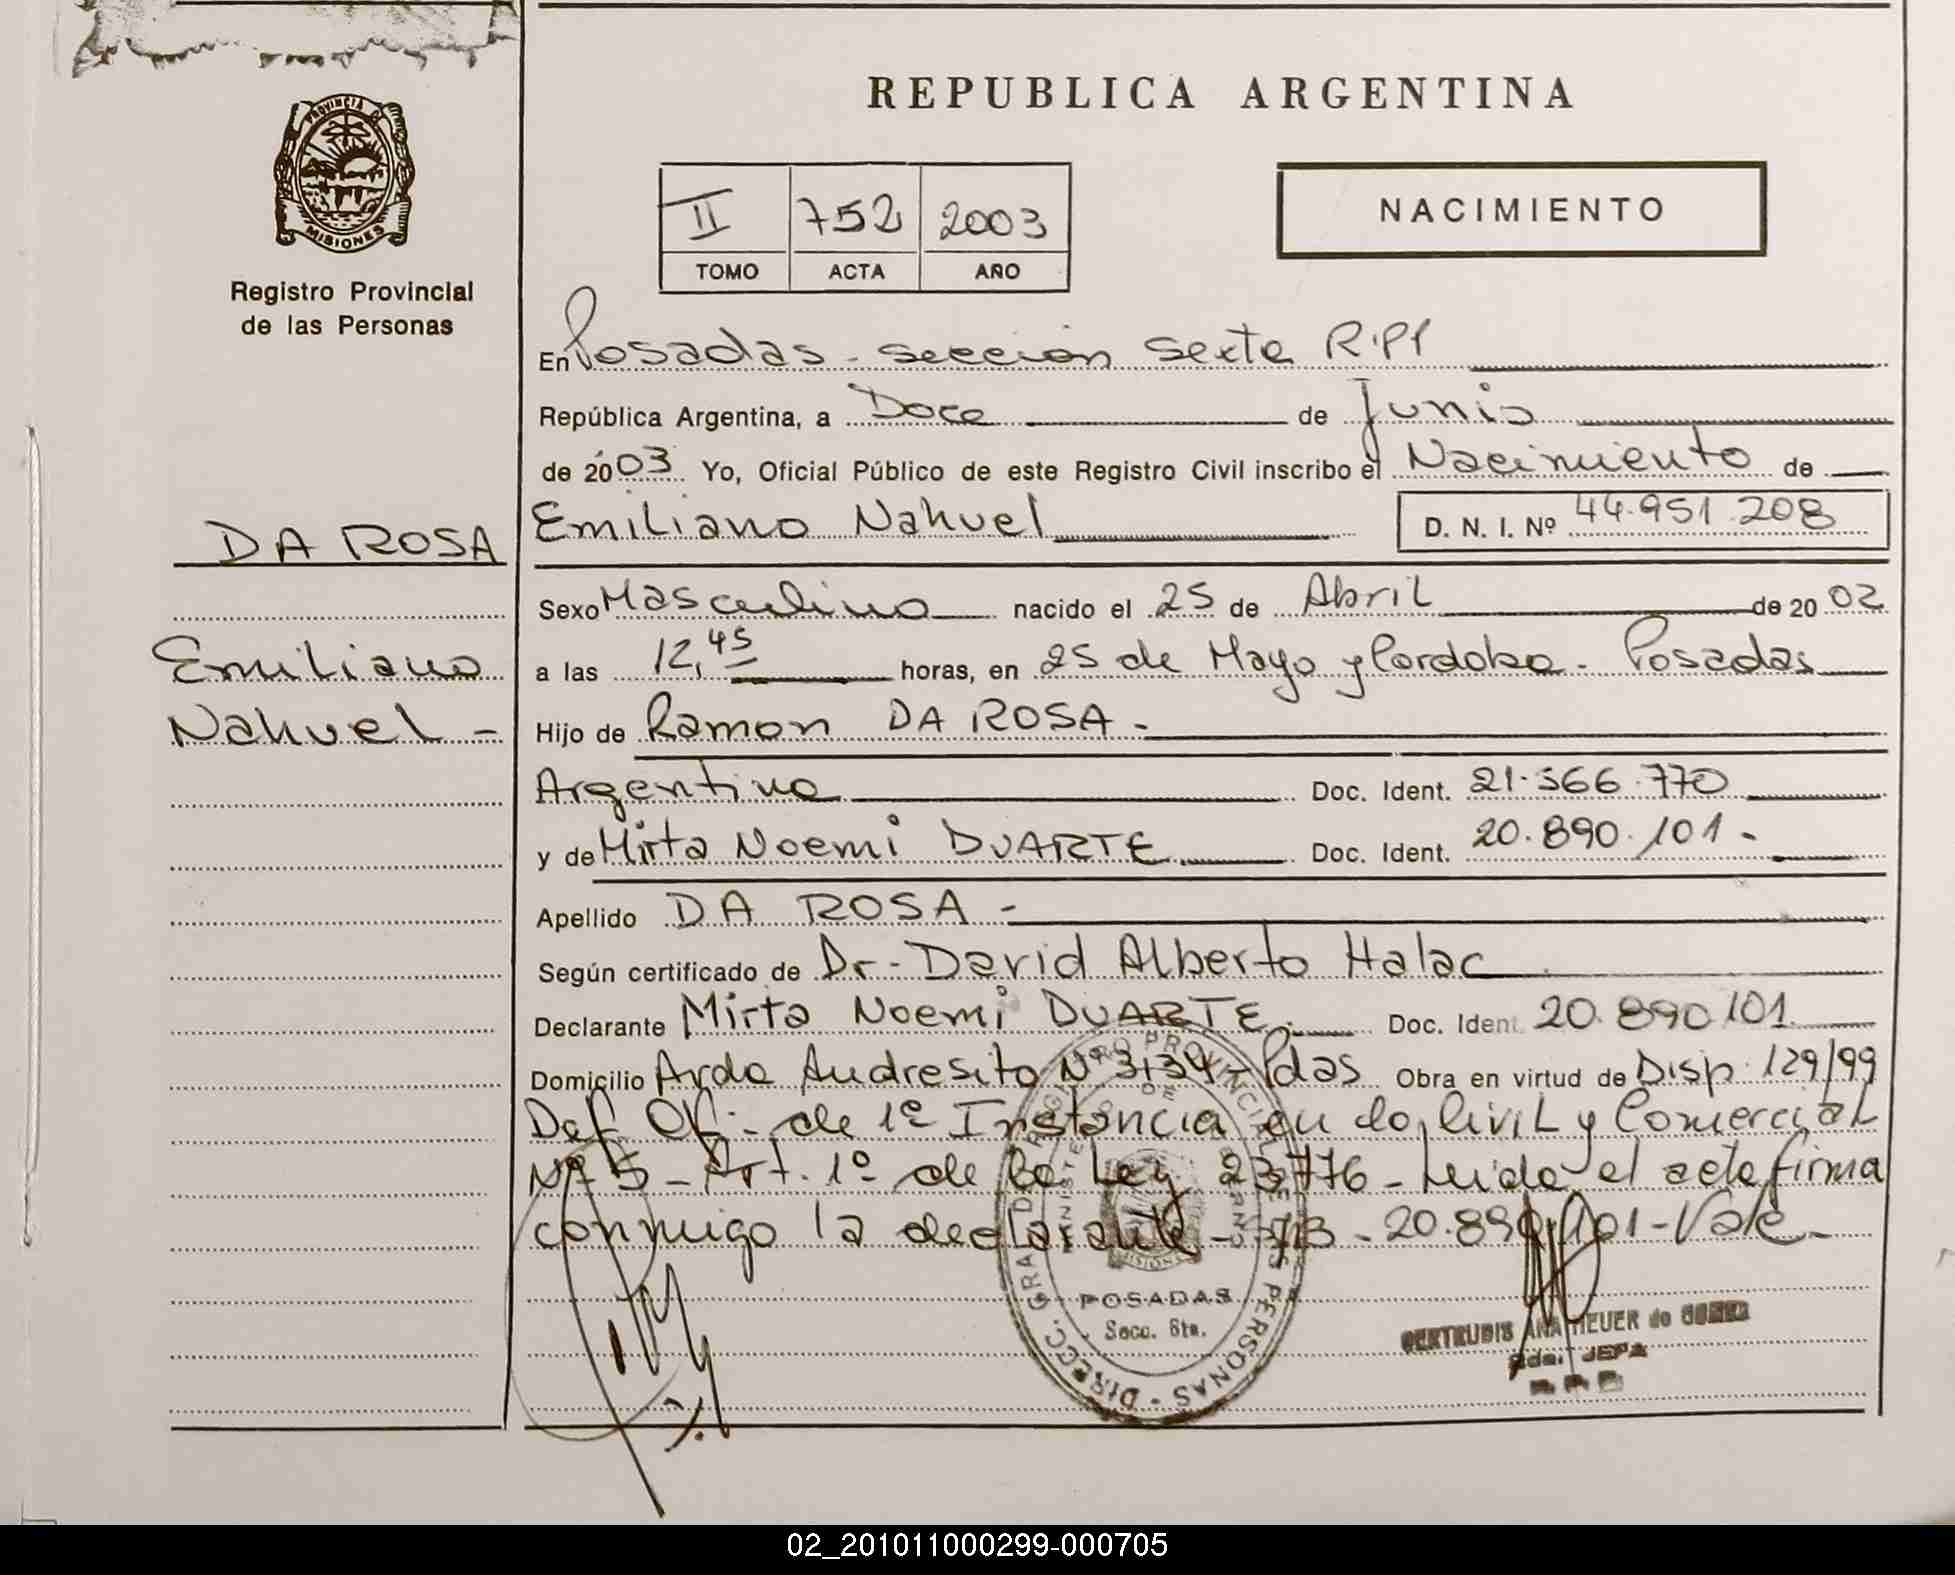 REPUBLICA ARGENTINA
PROVINCIA DE MISIONES
Registro Provincial
de las Personas
II 752 2003
TOMO ACTA AÑO
NACIMIENTO
En Posadas - sección sexta R.P.P
República Argentina, a Doce de Junio
de 2003 Yo, Oficial Público de este Registro Civil inscribo el Nacimiento de
DA ROSA
Emiliano
Nahuel -
Emiliano Nahuel D. N. I. Nº 44.951.208
Sexo Masculino nacido el 25 de Abril de 2002
a las 12,45 horas, en 25 de Mayo y Cordoba - Posadas
Hijo de Ramon DA ROSA -
Argentino Doc. Ident. 21.366.770
y de Mirta Noemi DUARTE Doc. Ident. 20.890.101 -
Apellido DA ROSA -
Según certificado de Dr - David Alberto Halac
Declarante Mirta Noemi DUARTE Doc. Ident. 20.890.101
Domicilio Avda Andresito Nº 3134 - Pdas Obra en virtud de Disp. 129/99
Def. Of. - de 1º Instancia en lo Civil y Comercial
Nº 5 - Art. 1º de la Ley 23776 - Leida el acta firma
conmigo la declarante - 20.890.101 - Vale -
DIRECC. GRAL DEL REGISTRO PROVINCIAL DE LAS PERSONAS
MINISTERIO DE GOBIERNO
MISIONES
POSADAS
Secc. 6ta.
GERTRUDIS ANA HEUER de
JEFA
02_201011000299-000705